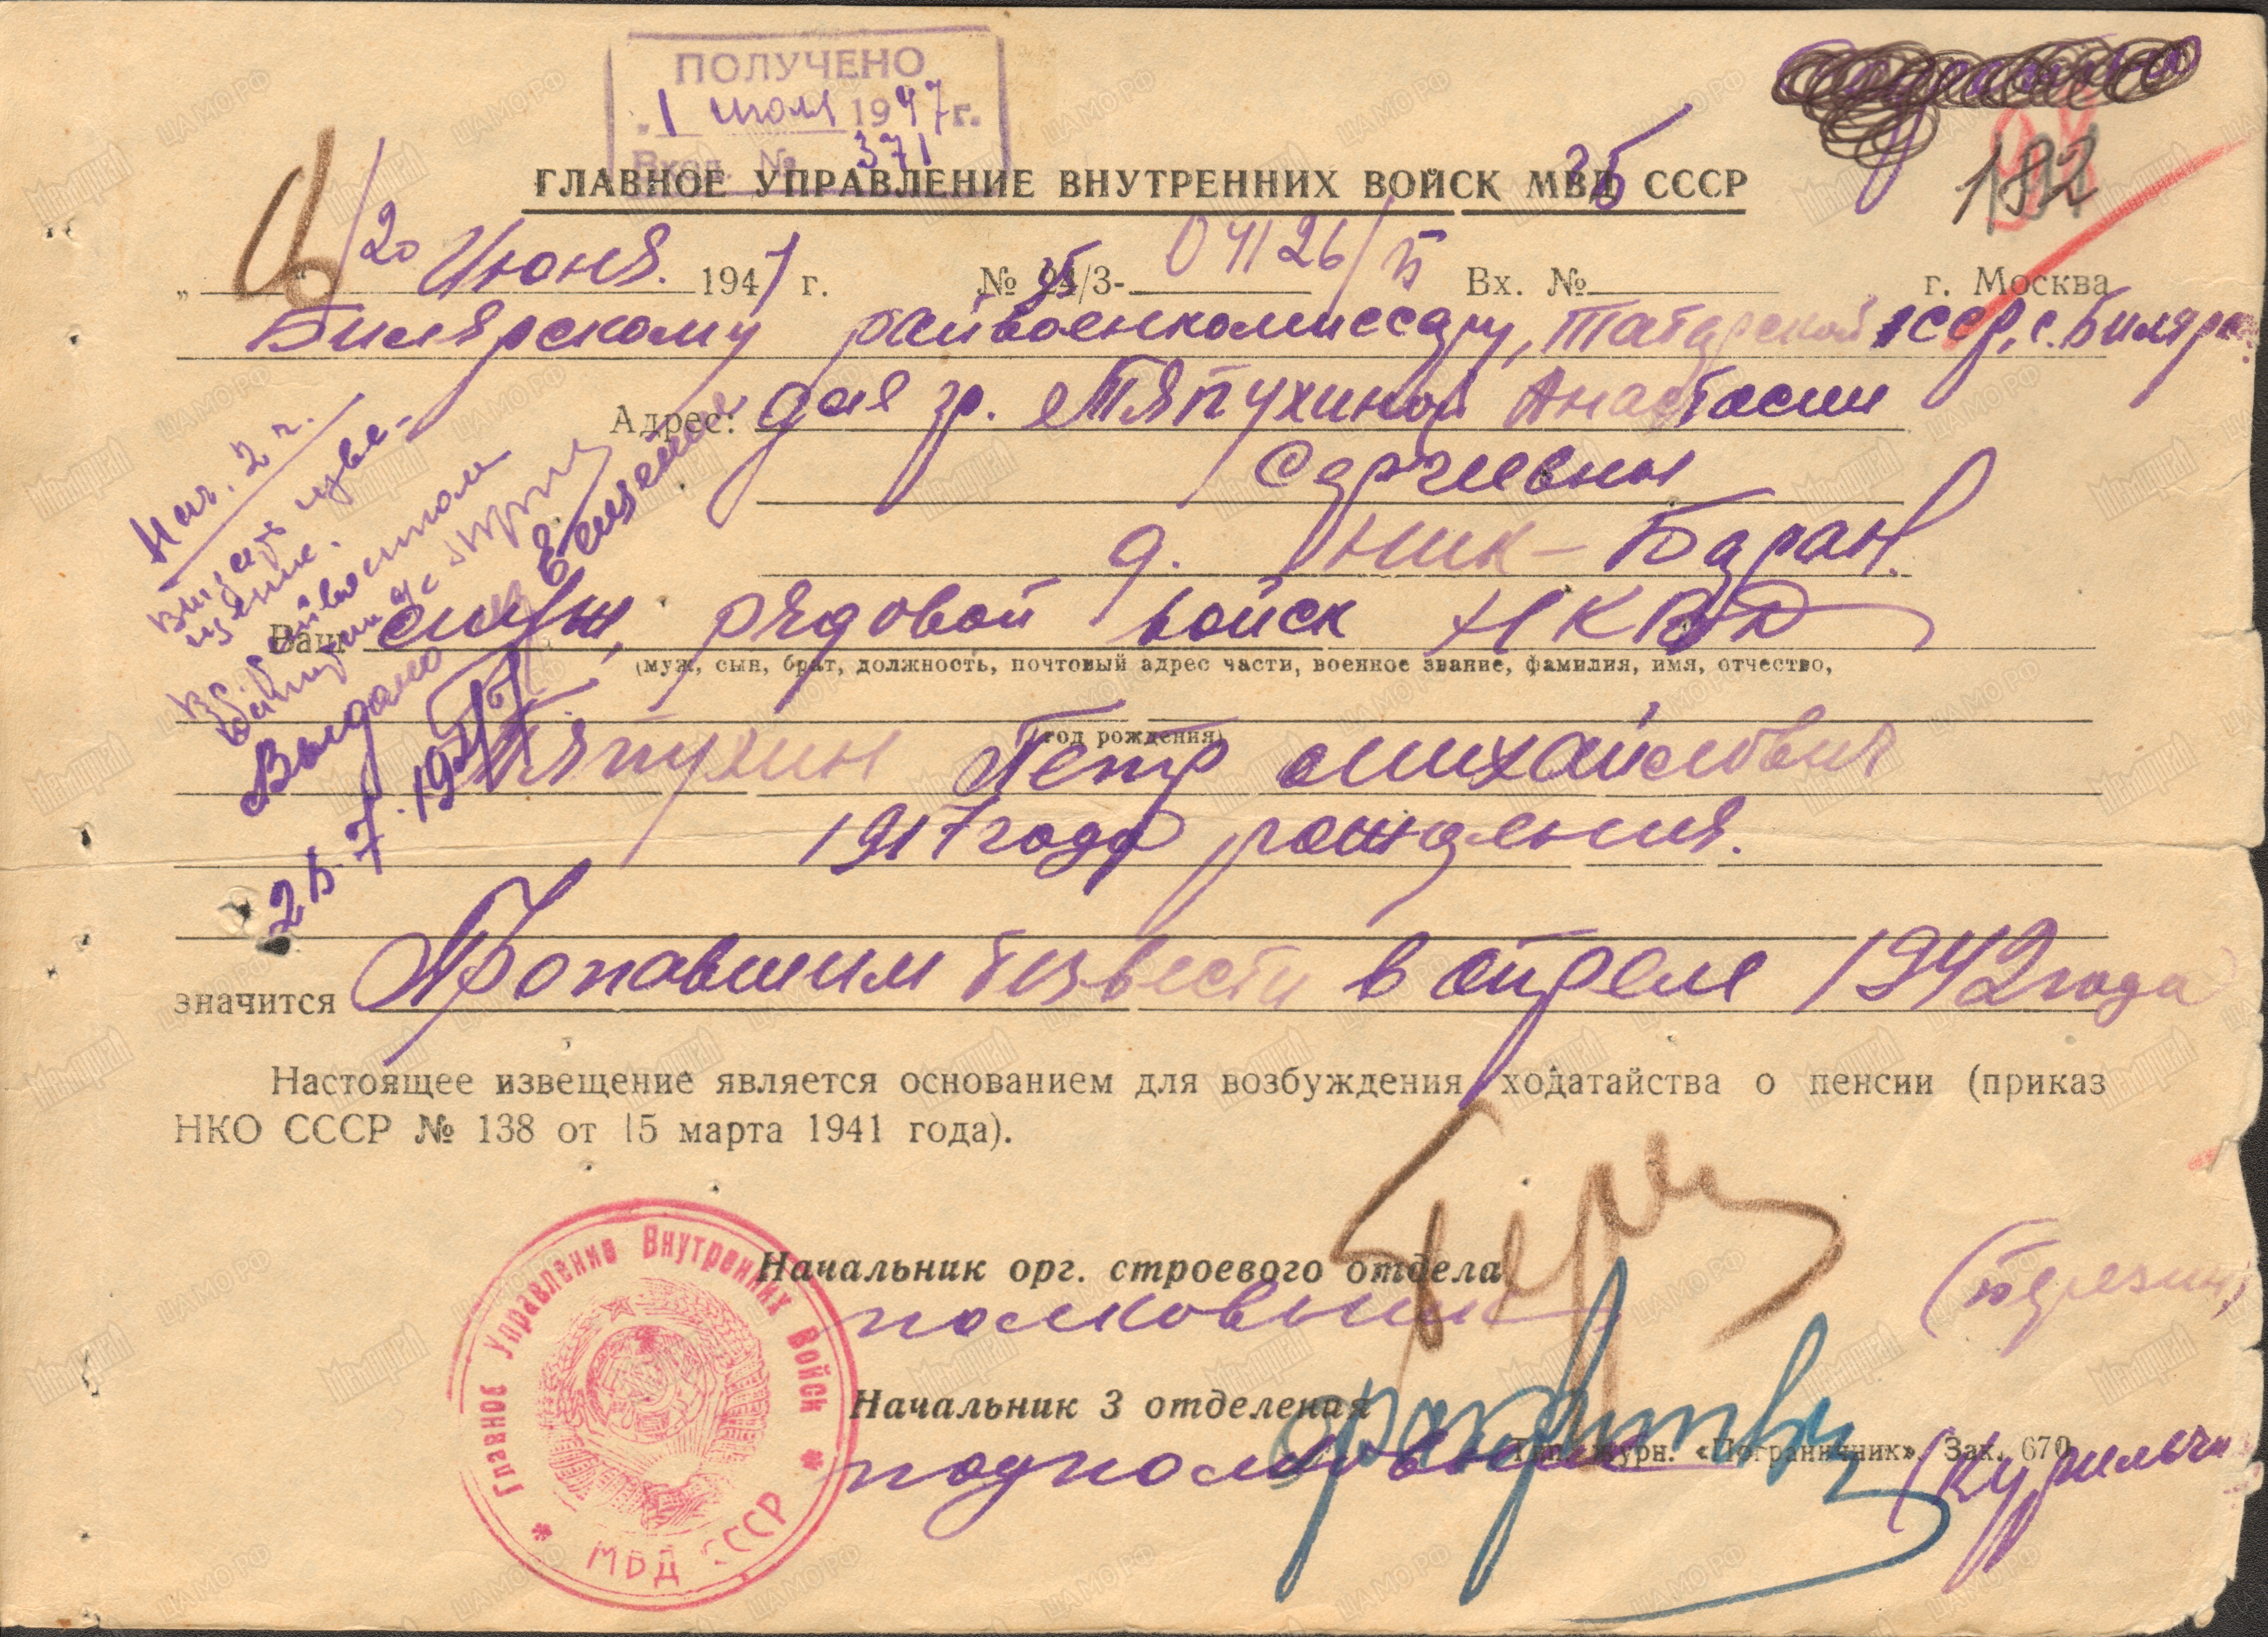 ПОЛУЧЕНО
„1 июля 1947г.
Вход. № 371
192
ГЛАВНОЕ УПРАВЛЕНИЕ ВНУТРЕННИХ ВОЙСК МВД СССР
20 Июня. 1947 г. № /3- Вх. № г. Москва
Билярскому райвоенкомиссару, Татарской АССР, с. Билярск.
Адрес: для гр. Тяпухиной Анастасии
Сергеевны
д. Ник-Баран.
Нач. 2 ч.
Выдано
25.7.1947
Ваш сын, рядовой войск НКВД
(муж, сын, брат, должность, почтовый адрес части, военное звание, фамилия, имя, отчество,
год рождения)
Тяпухин Петр Михайлович
1917 года рождения.
значится Пропавшим без вести в апреле 1942 года
Настоящее извещение является основанием для возбуждения ходатайства о пенсии (приказ
НКО СССР № 138 от 15 марта 1941 года).
Начальник орг. строевого отдела
полковник
Начальник 3 отделения
подполковник
Тип. журн. «Пограничник». Зак. 670
Главное Управление Внутренних Войск
МВД СССР